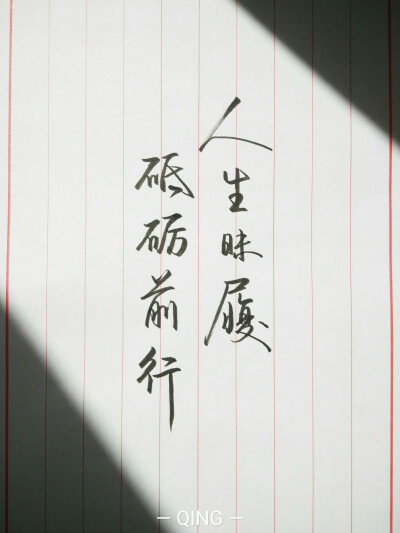 人生昧履
砥砺前行
— QING —